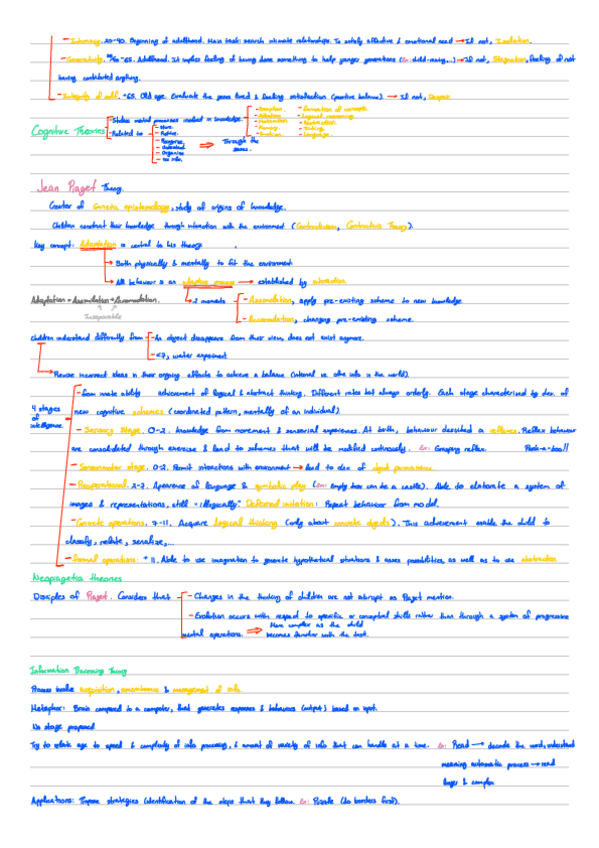 - Intimacy. 20-40. Beginning of adulthood. Main task: search intimate relationships. To satisfy affective & emotional need → If not, Isolation.
- Generativity. -65. Adulthood. It implies feeling of having done something to help younger generations (Ex: child-rearing,...) → If not, Stagnation, feeling of not
having contributed anything.
- Integrity of self. +65. Old age. Evaluate the years lived & feeling satisfaction (positive balance) → If not, Despair
Cognitive Theories
- Studies mental processes involved in knowledge
- Related to
- Store.
- Retrieve.
- Recognise
- Understand
- Organise
- Use info.
⇒ Through the
senses.
- Perception.
- Attention
- Memory.
- Formation of concepts.
- Logical reasoning.
- Abstraction
- Thinking.
- Language.
Jean Piaget Theory.
Creator of Genetic epistemology, study of origins of knowledge.
Children construct their knowledge through interaction with the environment (Constructivism, Constructive Theory).
Key concept: Adaptation is central to his theory
→ Both physically & mentally to fit the environment
→ All behaviour is an adaptive process → established by interaction
Adaptation = Assimilation + Accomodation.
Inseparable
→ 2 moments
- Assimilation, apply pre-existing scheme to new knowledge
- Accomodation, changing pre-existing scheme.
Children understand differently from
- An object disappears from their view, does not exist anymore.
- <7, water experiment
→ Revise incorrect ideas in their ongoing efforts to achieve a balance (internal vs. other info in the world).
4 stages
of
intelligence
- From innate ability achievement of logical & abstract thinking. Different rates but always orderly. Each stage characterised by dev. of
new cognitive schemes (coordinated pattern, mentally of an individual).
- Sensory Stage. 0-2. Knowledge from movement & sensorial experiences. At birth, behaviour described as reflexes. Reflex behaviour
are consolidated through exercise & lead to schemes that will be modified continuously. Ex: Grasping reflex. Peek-a-boo!!
- Sensorimotor stage. 0-2. Permit interactions with environment → lead to dev of object permanence.
- Preoperational. 2-7. Apearence of language & symbolic play (Ex: Empty box can be a castle). Able to elaborate a system of
images & representations, still "illogically." Deferred imitation: Repeat behaviour from model.
- Concrete operations. 7-11. Acquire logical thinking (only about concrete objects). This achievement enable the child to
classify, relate, serialize,...
- Formal operations: +11. Able to use imagination to generate hypothetical situations & asses possibilities, as well as to use abstraction
Neopiagetian theories
Disciples of Piaget. Consider that
- Changes in the thinking of children are not as abrupt as Piaget mention.
- Evolution occurs with respect to specific or conceptual skills rather than through a system of progressive
mental operations ⇒ More complex as the child
becomes familiar with the task.
Information Processing Theory
Process involve acquisition, remembrance & management of info.
Metaphor: Brain compared to a computer, that generates responses & behaviours (output) based on input.
No stage proposed
Try to relate age to speed & complexity of info processing, & amount of variety of info that can handle at a time. Ex: Read → decode the word, understand
meaning automatic process → read
larger & complex
Applications: Propose strategies (identification of the steps that they follow. Ex: Puzzle (do borders first).